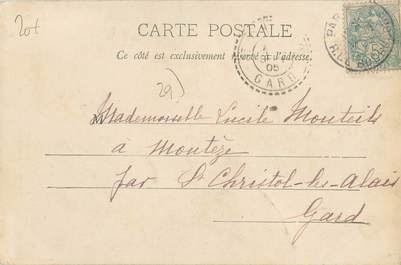 20f
CARTE POSTALE
Ce côté est exclusivement réservé à l'adresse.
29)
GARD
05
PAR
Mademoiselle Lucile Monteils
à Montèze
par St Christol-les-Alais
Gard